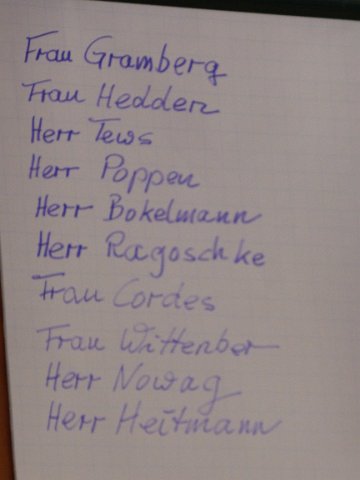 Frau Gramberg
Frau Hedden
Herr Tews
Herr Poppen
Herr Bokelmann
Herr Ragoschke
Frau Cordes
Frau Wittenber
Herr Nowag
Herr Heitmann